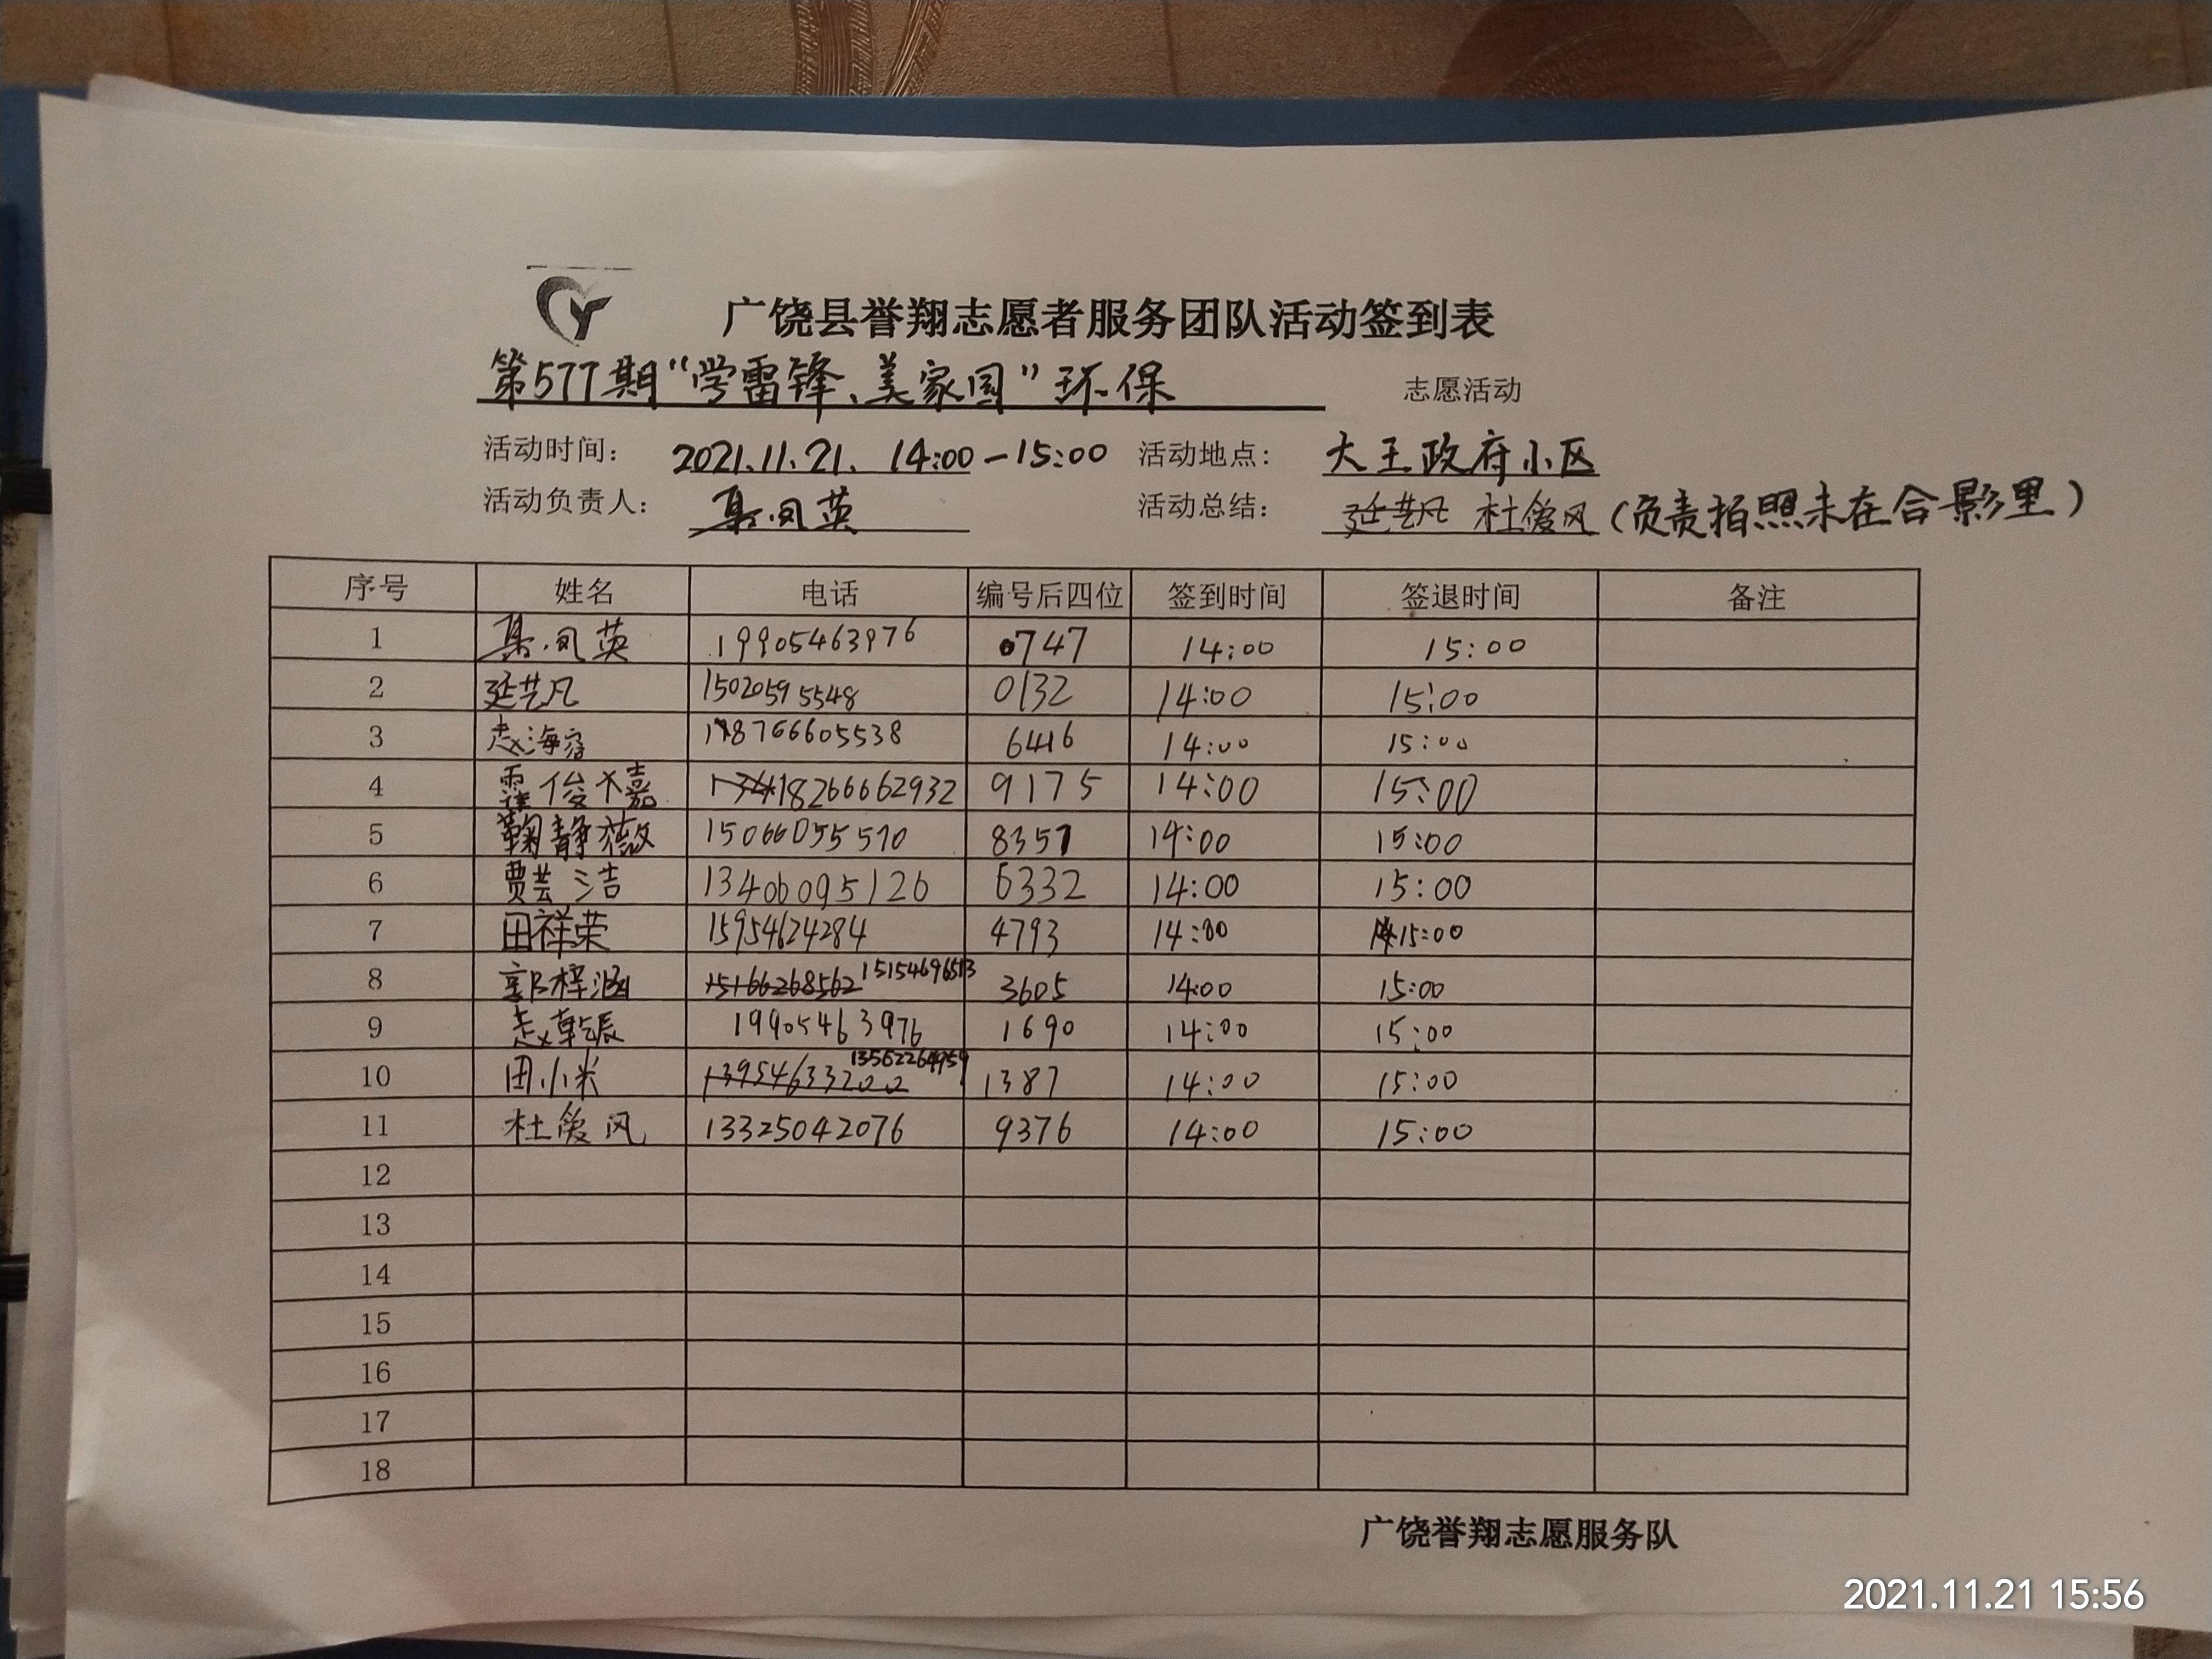 广饶县誉翔志愿者服务团队活动签到表
第577期“学雷锋、美家园”环保 志愿活动
活动时间： 2021.11.21. 14:00-15:00 活动地点： 大王政府小区
活动负责人： 凤英 活动总结： 延艺凡 杜俊风（负责拍照未在合影里）
序号 姓名 电话 编号后四位 签到时间 签退时间 备注
1 凤英 19905463976 0747 14:00 15:00
2 延艺凡 15020595548 0132 14:00 15:00
3 赵海容 18766605538 6416 14:00 15:00
4 霍俊嘉 18266662932 9175 14:00 15:00
5 鞠静薇 15066055570 8351 14:00 15:00
6 贾芸洁 13406095126 6332 14:00 15:00
7 田祥荣 15954624284 4793 14:00 15:00
8 郭梓涵 15166268562 15154696513 3605 14:00 15:00
9 赵乾辰 19905463976 1690 14:00 15:00
10 田小米 13954633202 13562264959 1387 14:00 15:00
11 杜俊风 13325042076 9376 14:00 15:00
12
13
14
15
16
17
18
广饶誉翔志愿服务队
2021.11.21 15:56